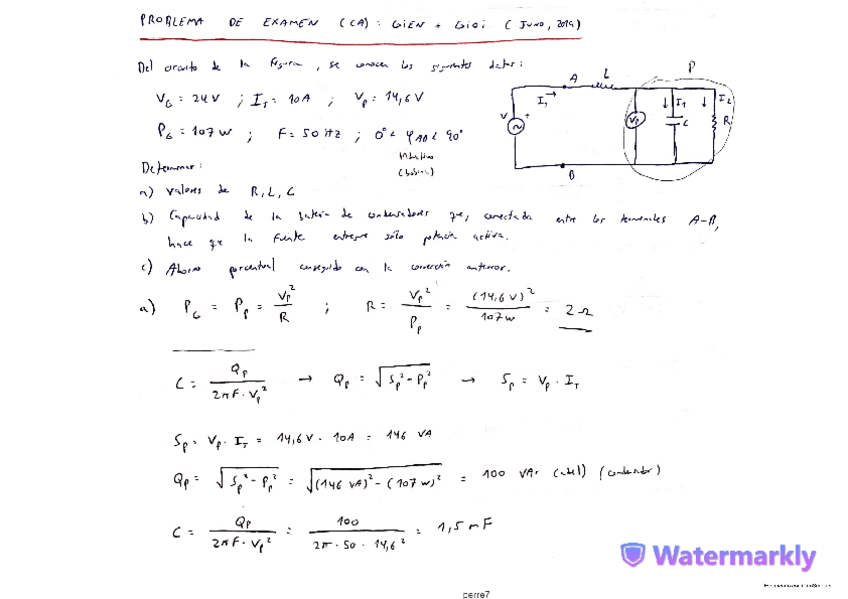 PROBLEMA DE EXAMEN (CA): GIEN + GIOI (JUNIO, 2019)
Del circuito de la figura, se conocen los siguientes datos:
V_G = 24 V ; I_T = 10A ; V_P = 14,6 V
P_G = 107 W ; F = 50 Hz ; 0° < φ_AB < 90°
inductivo
Determinar:
a) Valores de R, L, C
b) Capacidad de la batería de condensadores que, conectada entre los terminales A-B,
hace que la fuente entregue sólo potencia activa.
c) Ahorro porcentual conseguido con la corrección anterior.
A L P
I_T → V + V_P ↓ I_1 C ↓ I_2 R
B
a) P_G = P_P = V_P² / R ; R = V_P² / P_P = (14,6 V)² / 107 W = 2 Ω
C = Q_P / 2πF·V_P² → Q_P = √(S_P² - P_P²) → S_P = V_P · I_T
S_P = V_P · I_T = 14,6 V · 10A = 146 VA
Q_P = √(S_P² - P_P²) = √((146 VA)² - (107 W)²) = 100 VAr (condensador)
C = Q_P / 2πF·V_P² = 100 / 2π·50·14,6² = 1,5 mF
Watermarkly
perra7